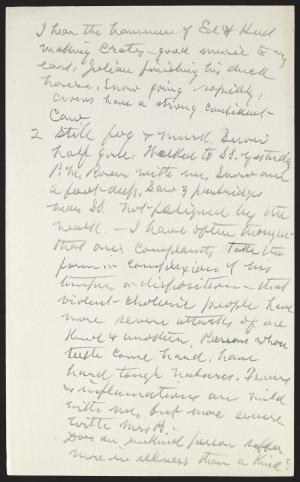 I hear the hammers of Ed & Hud
making crates - good music to my
ears, Julian finishing his duck
house. Snow going rapidly,
crows have a strong confident
Caw
2 Still fog & murk. Snow
half gone. Walked to SS. yesterday
P.M. with me, Snow over
a foot deep, Saw 3 partridges
near SS. Not fatigued by the
walk. - I have often thought
that ones complaints take the
form or complexion of his
temper or disposition - that
violent-choleric people have
more severe attacks of one
kind & another. Persons whose
teeth come hard, have
hard tough natures. Fevers
& inflamations are mild
with me, but more severe
with Mrs B. -
Does an unkind person suffer
more in illness than a kind?